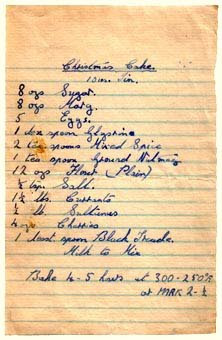 Christmas Cake.
10in. Tin.
8 ozs Sugar.
8 ozs Marg.
5 Eggs.
1 des spoon Glycerine
2 tea spoons Mixed Spice
1 tea spoon Ground Nutmeg
12 ozs Flour (Plain)
½ tsp. Salt.
1½ lbs. Currants
½ lb. Sultanas
4 ozs Cherries
1 desst. spoon Black Treacle.
Milk to Mix
Bake 4-5 hours at 300-250°F
or MARK 2-½